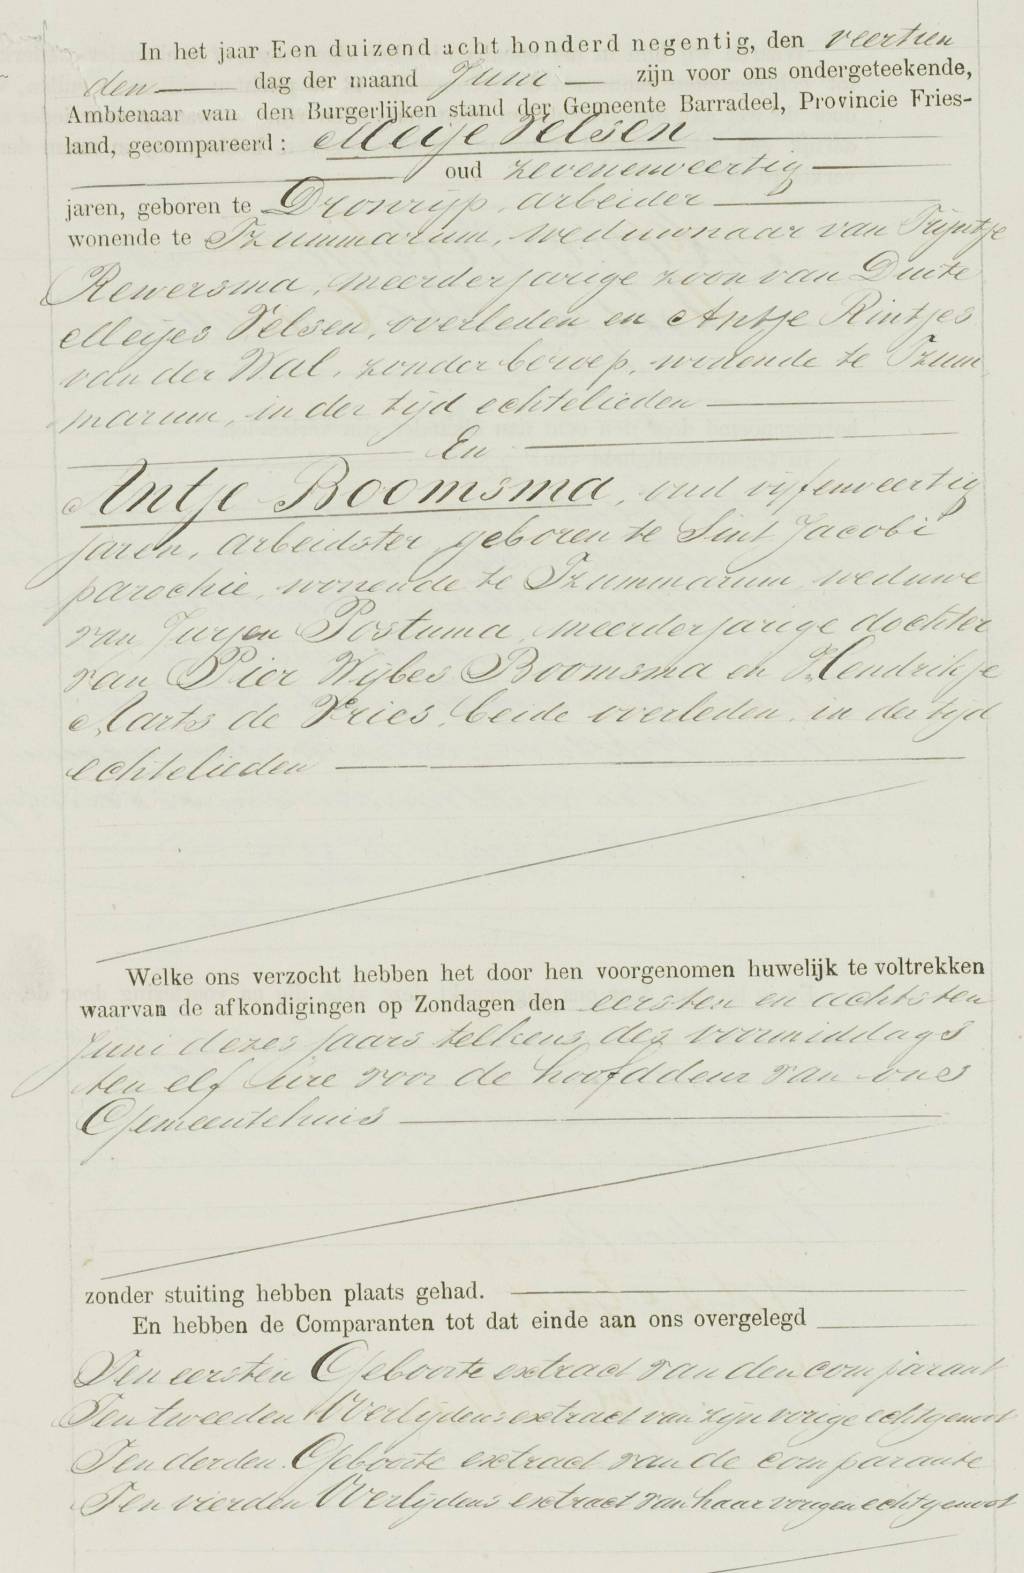 In het jaar Een duizend acht honderd negentig, den veertien
den dag der maand Juni zijn voor ons ondergeteekende,
Ambtenaar van den Burgerlijken stand der Gemeente Barradeel, Provincie Fries-
land, gecompareerd: Meije Velsen
oud zevenenveertig
jaren, geboren te Dronrijp, arbeider
wonende te Tzummarum, weduwnaar van Trijntje
Rewersma, meerderjarige zoon van Duite
Meijes Velsen, overleden en Antje Rintjes
van der Wal, zonder beroep, wonende te Tzum
marum, in der tijd echtelieden
En
Antje Boomsma, oud vijfenveertig
jaren, arbeidster, geboren te Sint Jacobi
parochie, wonende te Tzummarum, weduwe
van Jurjen Postuma, meerderjarige dochter
van Pier Wijbes Boomsma en Hendrikje
Aarts de Vries, beide overleden, in der tijd
echtelieden
Welke ons verzocht hebben het door hen voorgenomen huwelijk te voltrekken
waarvan de afkondigingen op Zondagen den eersten en achtsten
Juni dezes jaars telkens des voormiddags
ten elf ure voor de hoofddeur van ons
Gemeentehuis
zonder stuiting hebben plaats gehad.
En hebben de Comparanten tot dat einde aan ons overgelegd
Ten eersten Geboorte extract van den comparant
Ten tweeden Overlijdens extract van zijn vorige echtgenoot
Ten derden Geboorte extract van de comparante
Ten vierden Overlijdens extract van haar vorigen echtgenoot